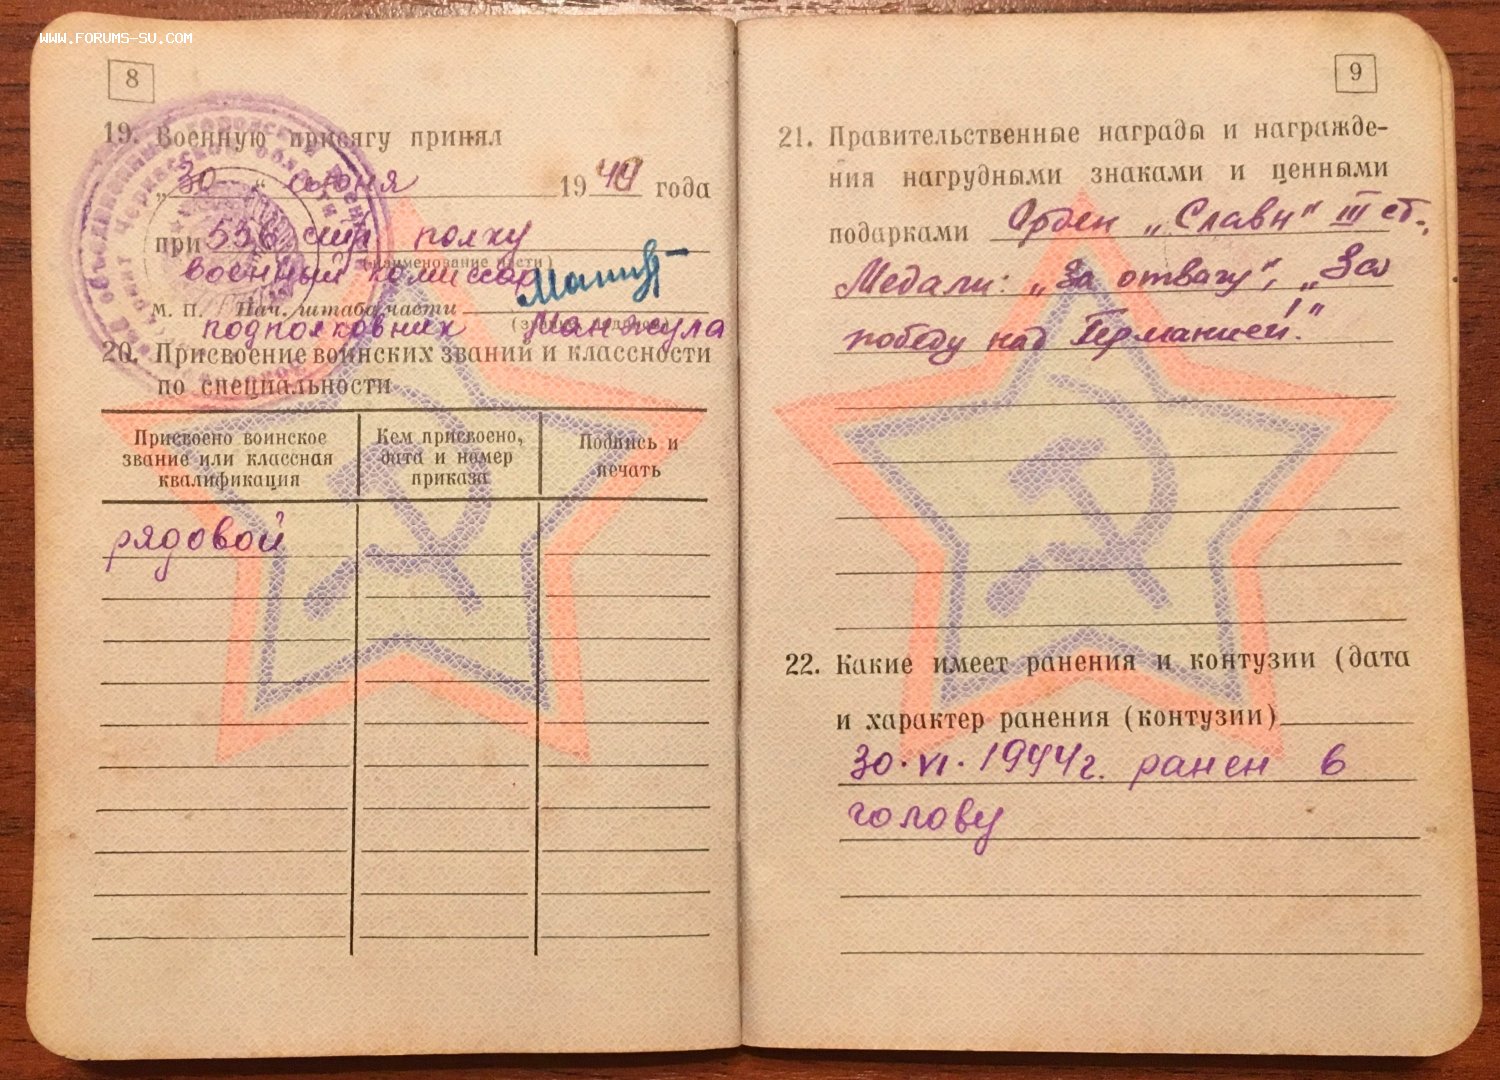 WWW.FORUMS-SU.COM
8
19. Военную присягу принял
„30“ июня 1944 года
при 556 стр полку
(наименование части)
военный комиссар
М. П. Нач. штаба части
подполковник Манжула
20. Присвоение воинских званий и классности
по специальности
Присвоено воинское
звание или классная
квалификация
Кем присвоено,
дата и номер
приказа
Подпись и
печать
рядовой
9
21. Правительственные награды и награжде-
ния нагрудными знаками и ценными
подарками Орден „Славы“ III ст.,
Медали: „За отвагу“, „За
победу над Германией!“
22. Какие имеет ранения и контузии (дата
и характер ранения (контузии)
30.VI.1944г. ранен в
голову